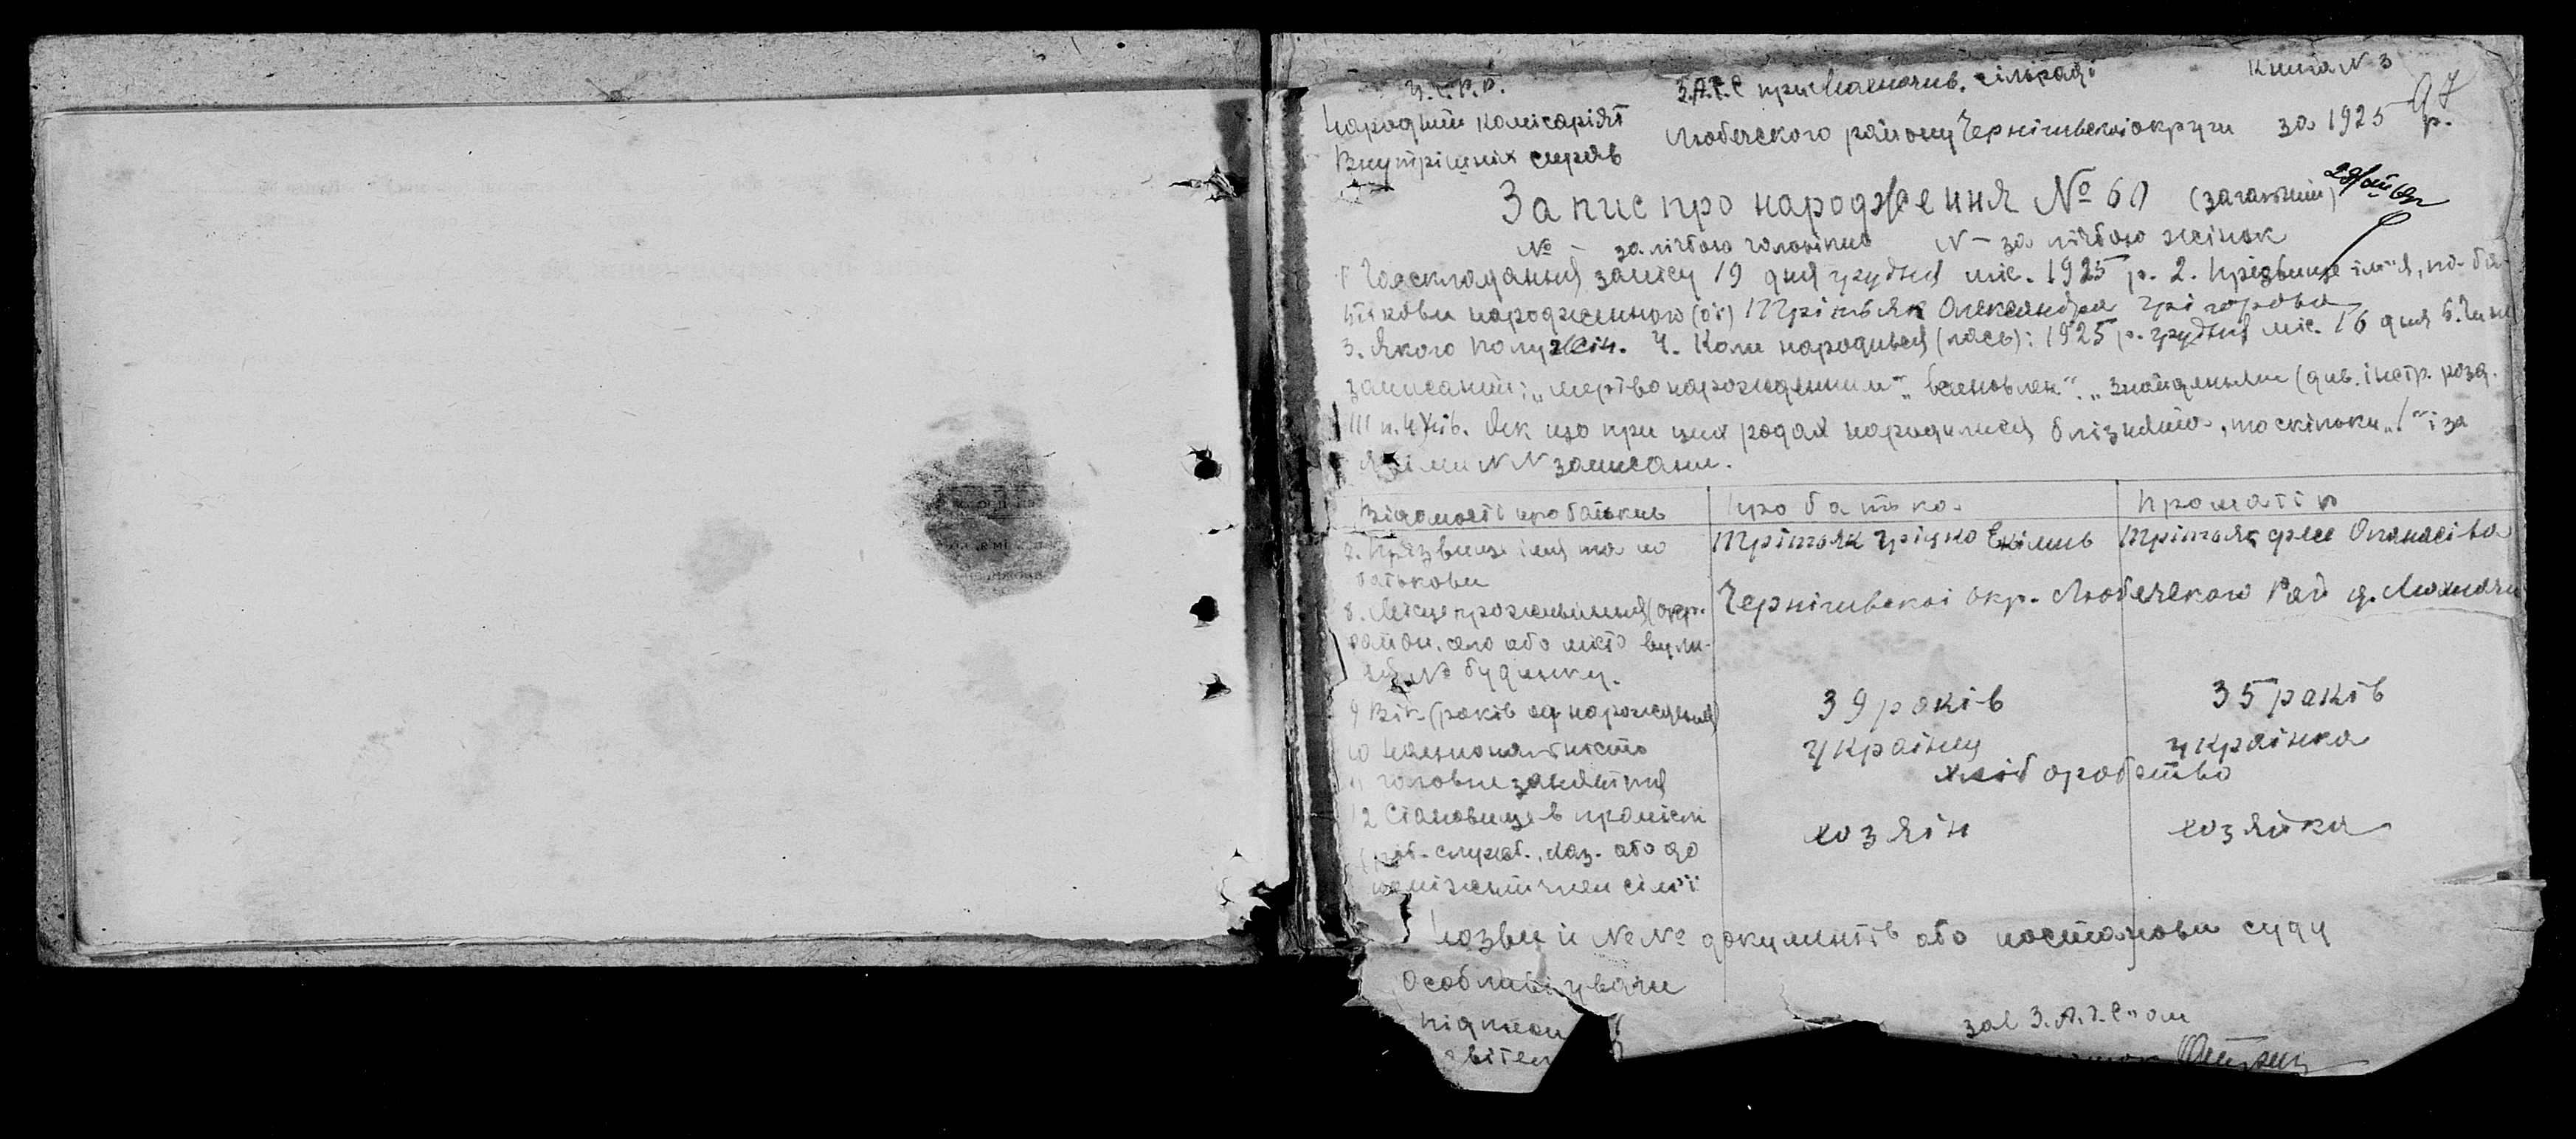 У.С.Р.Р.
З.А.Г.С при сільраді
Книга N 3
97
Народній комісаріят
Внутрішніх справ
Любечского району Чернігивскоі округи за 1925 р.
Запис про народження № 60 (загальний)
№ - за лічбою чоловіків N - за лічбою жінок
1 Час складання запису 19 дня грудня міс. 1925 р. 2. Прізвище ім"я, по ба-
тькови народженного (оі) Трітьяк Олександра Грігорова
3. Якого полу жін. 4. Коли народився (лась): 1925 р. грудня міс. 16 дня 5. Чи не
записаний: „мертвонарожденним" „ „знайденым (див. інстр. розд.
III п. 4) 6. Як що при цих родах народилися близнята, то скільки „1" і за
якіми N N записани.
Відомості про батьків
про батька
про матір
7. Прізвище імя та по
батькови
Трітяк Гріцко Екімів
Трітяк Опанасівна
8. Місце проживання (окр.
район, село або місто вули-
ця № будинку.
Чернігивскоі окр. Любечского Рай
9 Вік (років од народження)
39 років
35 років
10 Национальність
українец
українка
11 Головне заняття
хліборобство
12 Становище в промислі
(роб. служб., хаз. або до
помічний член сім'ї
хозяін
хозяйка
Назви и №№ документів або постанови суду
Особливі уваги
зав З.А.Г.С"ом